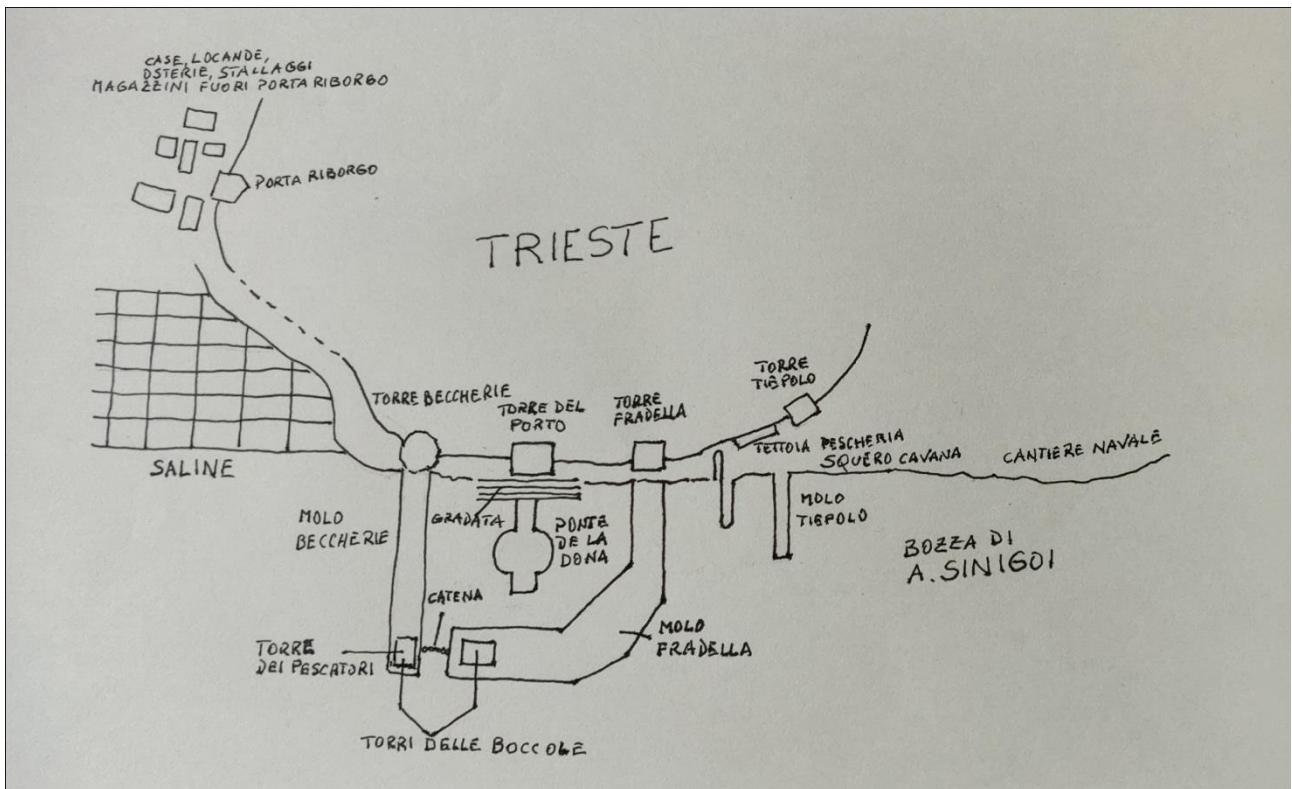 CASE, LOCANDE,
OSTERIE, STALLAGGI
MAGAZZINI FUORI PORTA RIBORGO
PORTA RIBORGO
TRIESTE
SALINE
TORRE BECCHERIE
TORRE DEL
PORTO
TORRE
FRADELLA
TORRE
TIEPOLO
TETTOIA PESCHERIA
SQUERO CAVANA
CANTIERE NAVALE
MOLO
BECCHERIE
GRADATA
PONTE
DE LA
DONA
MOLO
TIEPOLO
BOZZA DI
A. SINIGOI
CATENA
TORRE
DEI PESCATORI
MOLO
FRADELLA
TORRI DELLE BOCCOLE